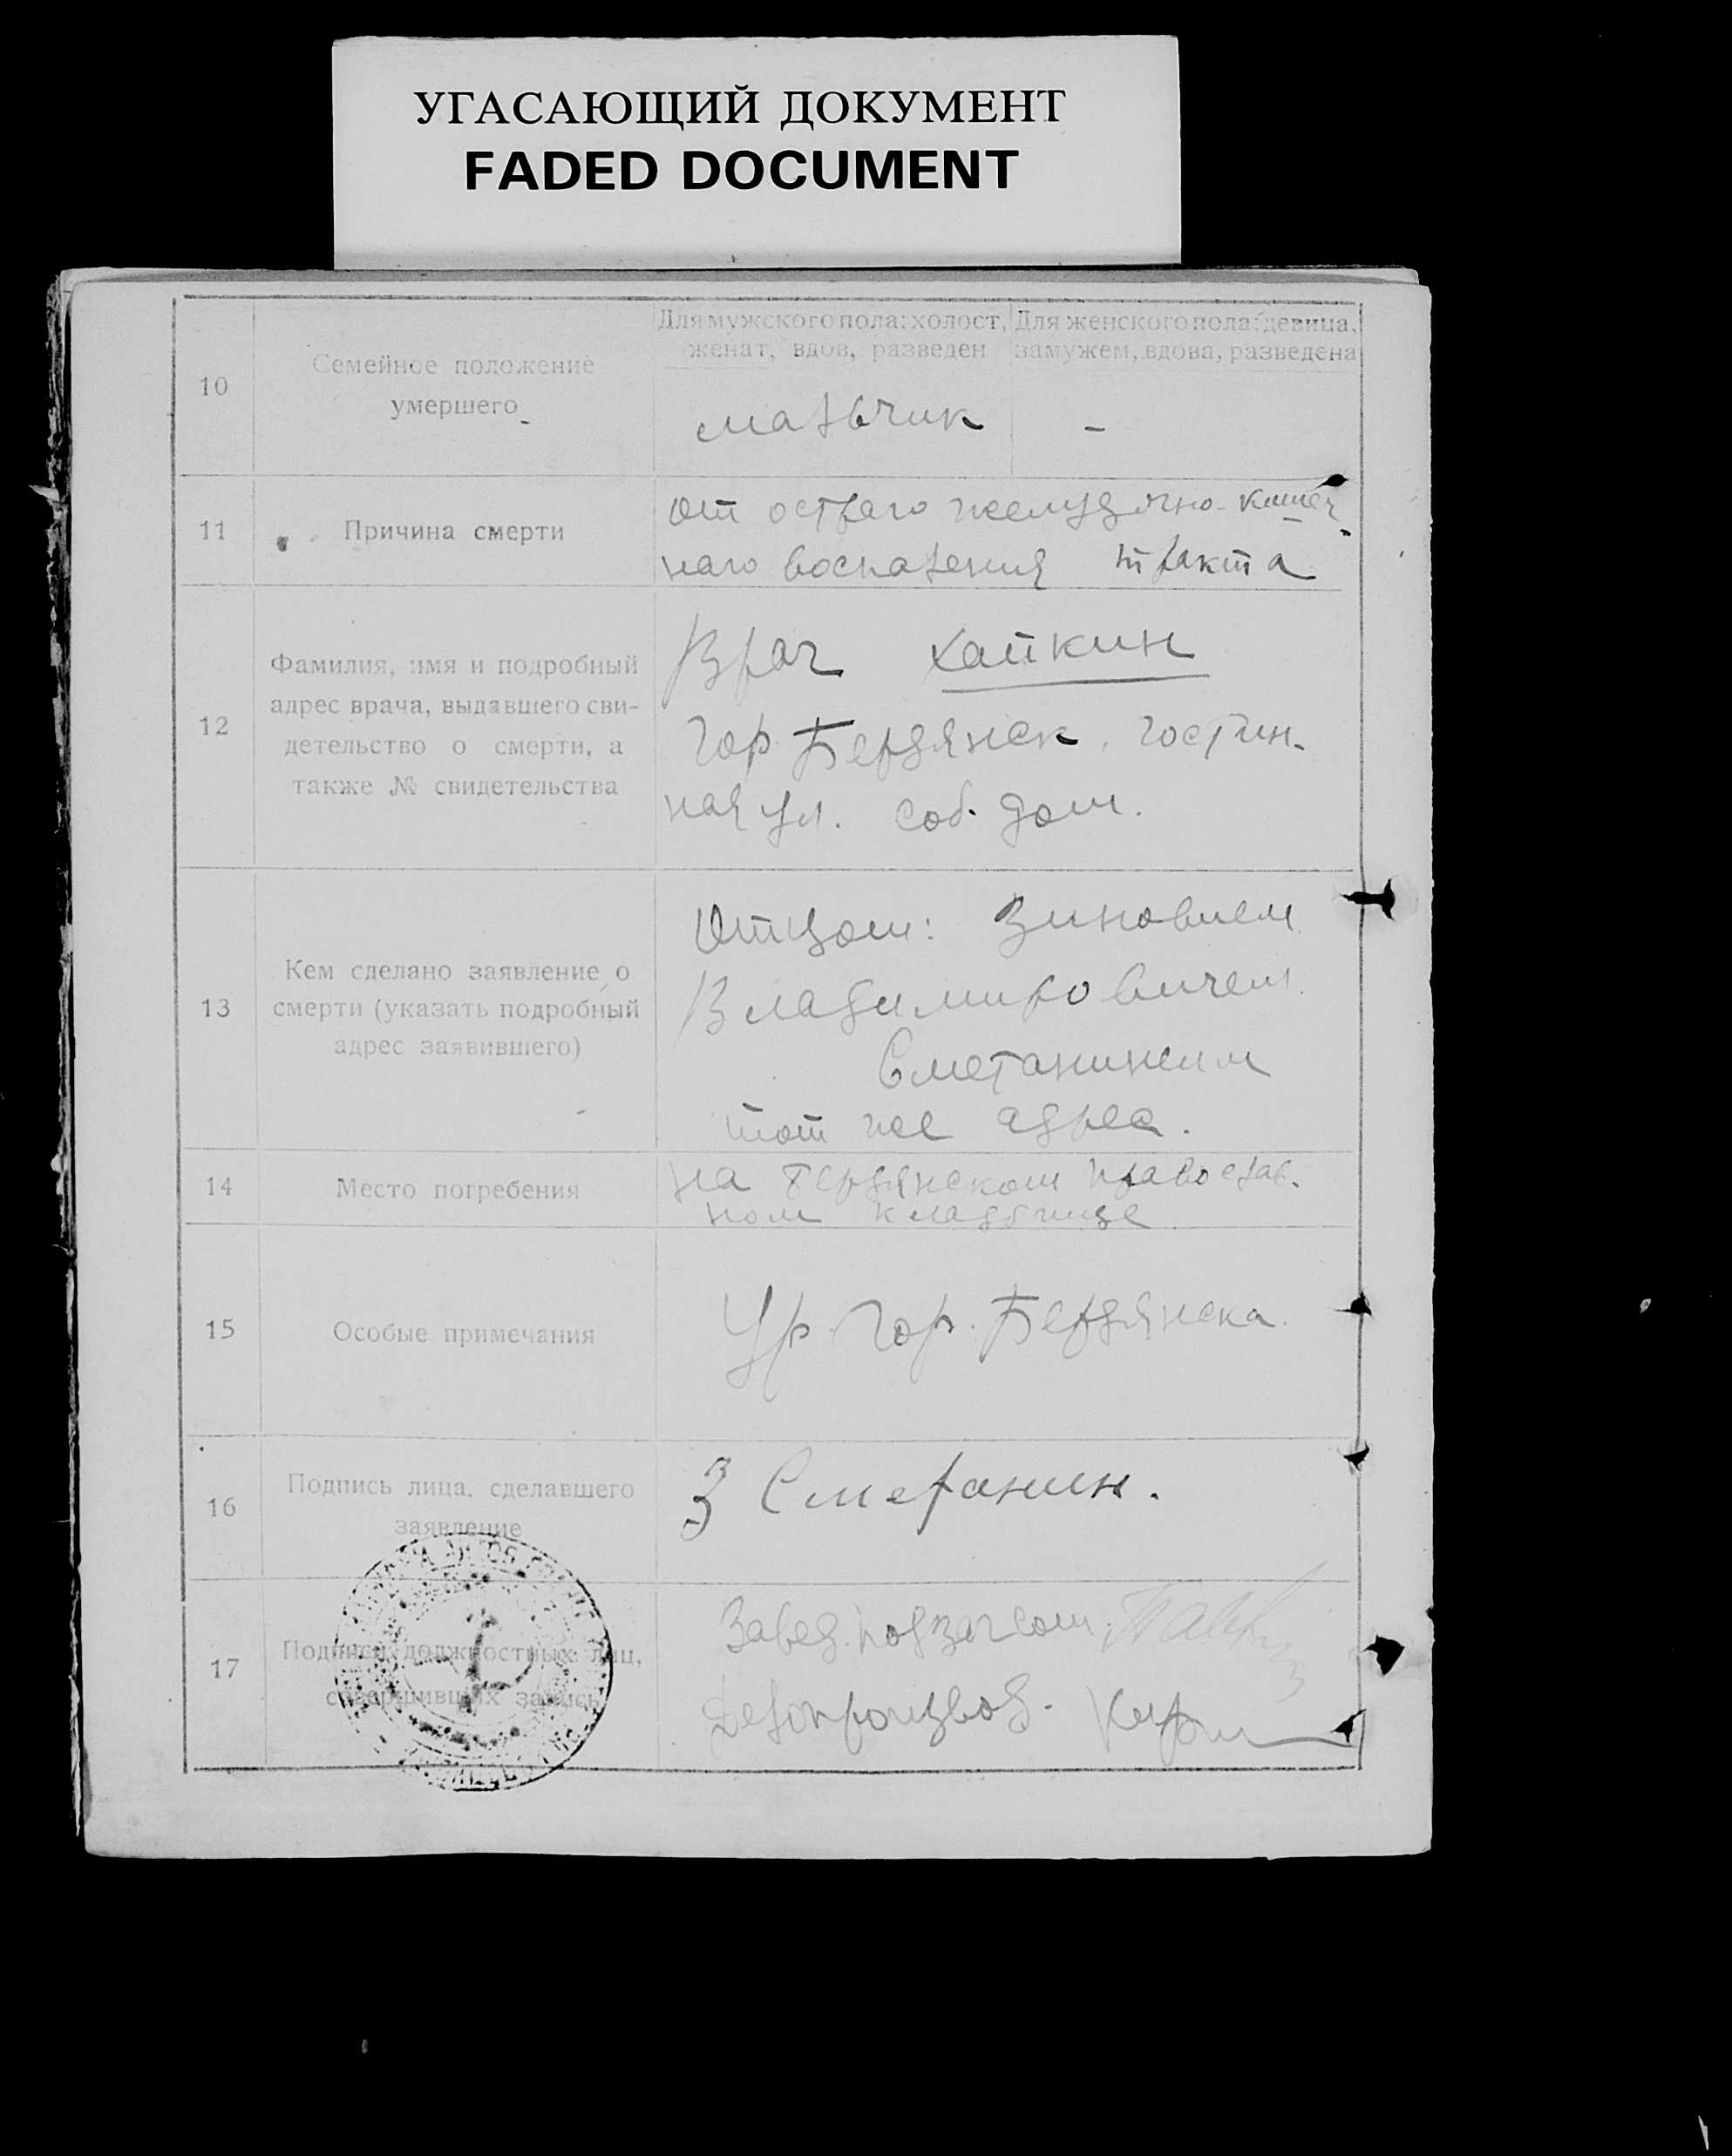 УГАСАЮЩИЙ ДОКУМЕНТ
FADED DOCUMENT
10
Семейное положение
умершего
Для мужского пола: холост,
женат, вдов, разведен
Для женского пола: девица,
замужем, вдова, разведена
мальчик -
11
Причина смерти
от острого желудочно-кишеч
ного воспаления тракта
12
Фамилия, имя и подробный
адрес врача, выдавшего сви-
детельство о смерти, а
также № свидетельства
Врач Хайкин
Гор. Бердянск, гостин-
ная ул. соб. дом.
13
Кем сделано заявление о
смерти (указать подробный
адрес заявившего)
Отцом: Зиновием
Владимировичем
Сметаниным
тот же адрес.
14
Место погребения
на Бердянском православ-
ном кладбище
15
Особые примечания
Ур. Гор. Бердянска.
16
Подпись лица, сделавшего
заявление
З Сметанин.
17
Подписи должностных лиц,
совершивших запись
Завед. подзагсом
Делопроизвод.